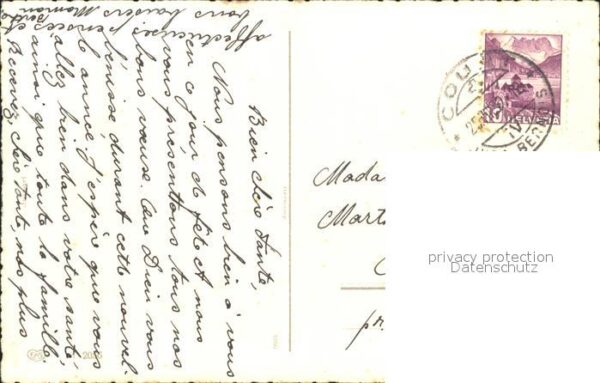 Bien chère Tante,
Nous pensons bien à vous
en ce jour de fête et nous
vous présentons tous nos
bons vœux. Que Dieu vous
bénisse, durant cette nouvel-
le année. J'espère que vous
allez bien dans votre santé,
ainsi que toute la famille.
Recevez, chère Tante, nos plus
affectueuses pensées et
bons baisers Maman
Mada
Mart
pr.
HELVETIA
privacy protection
Datenschutz